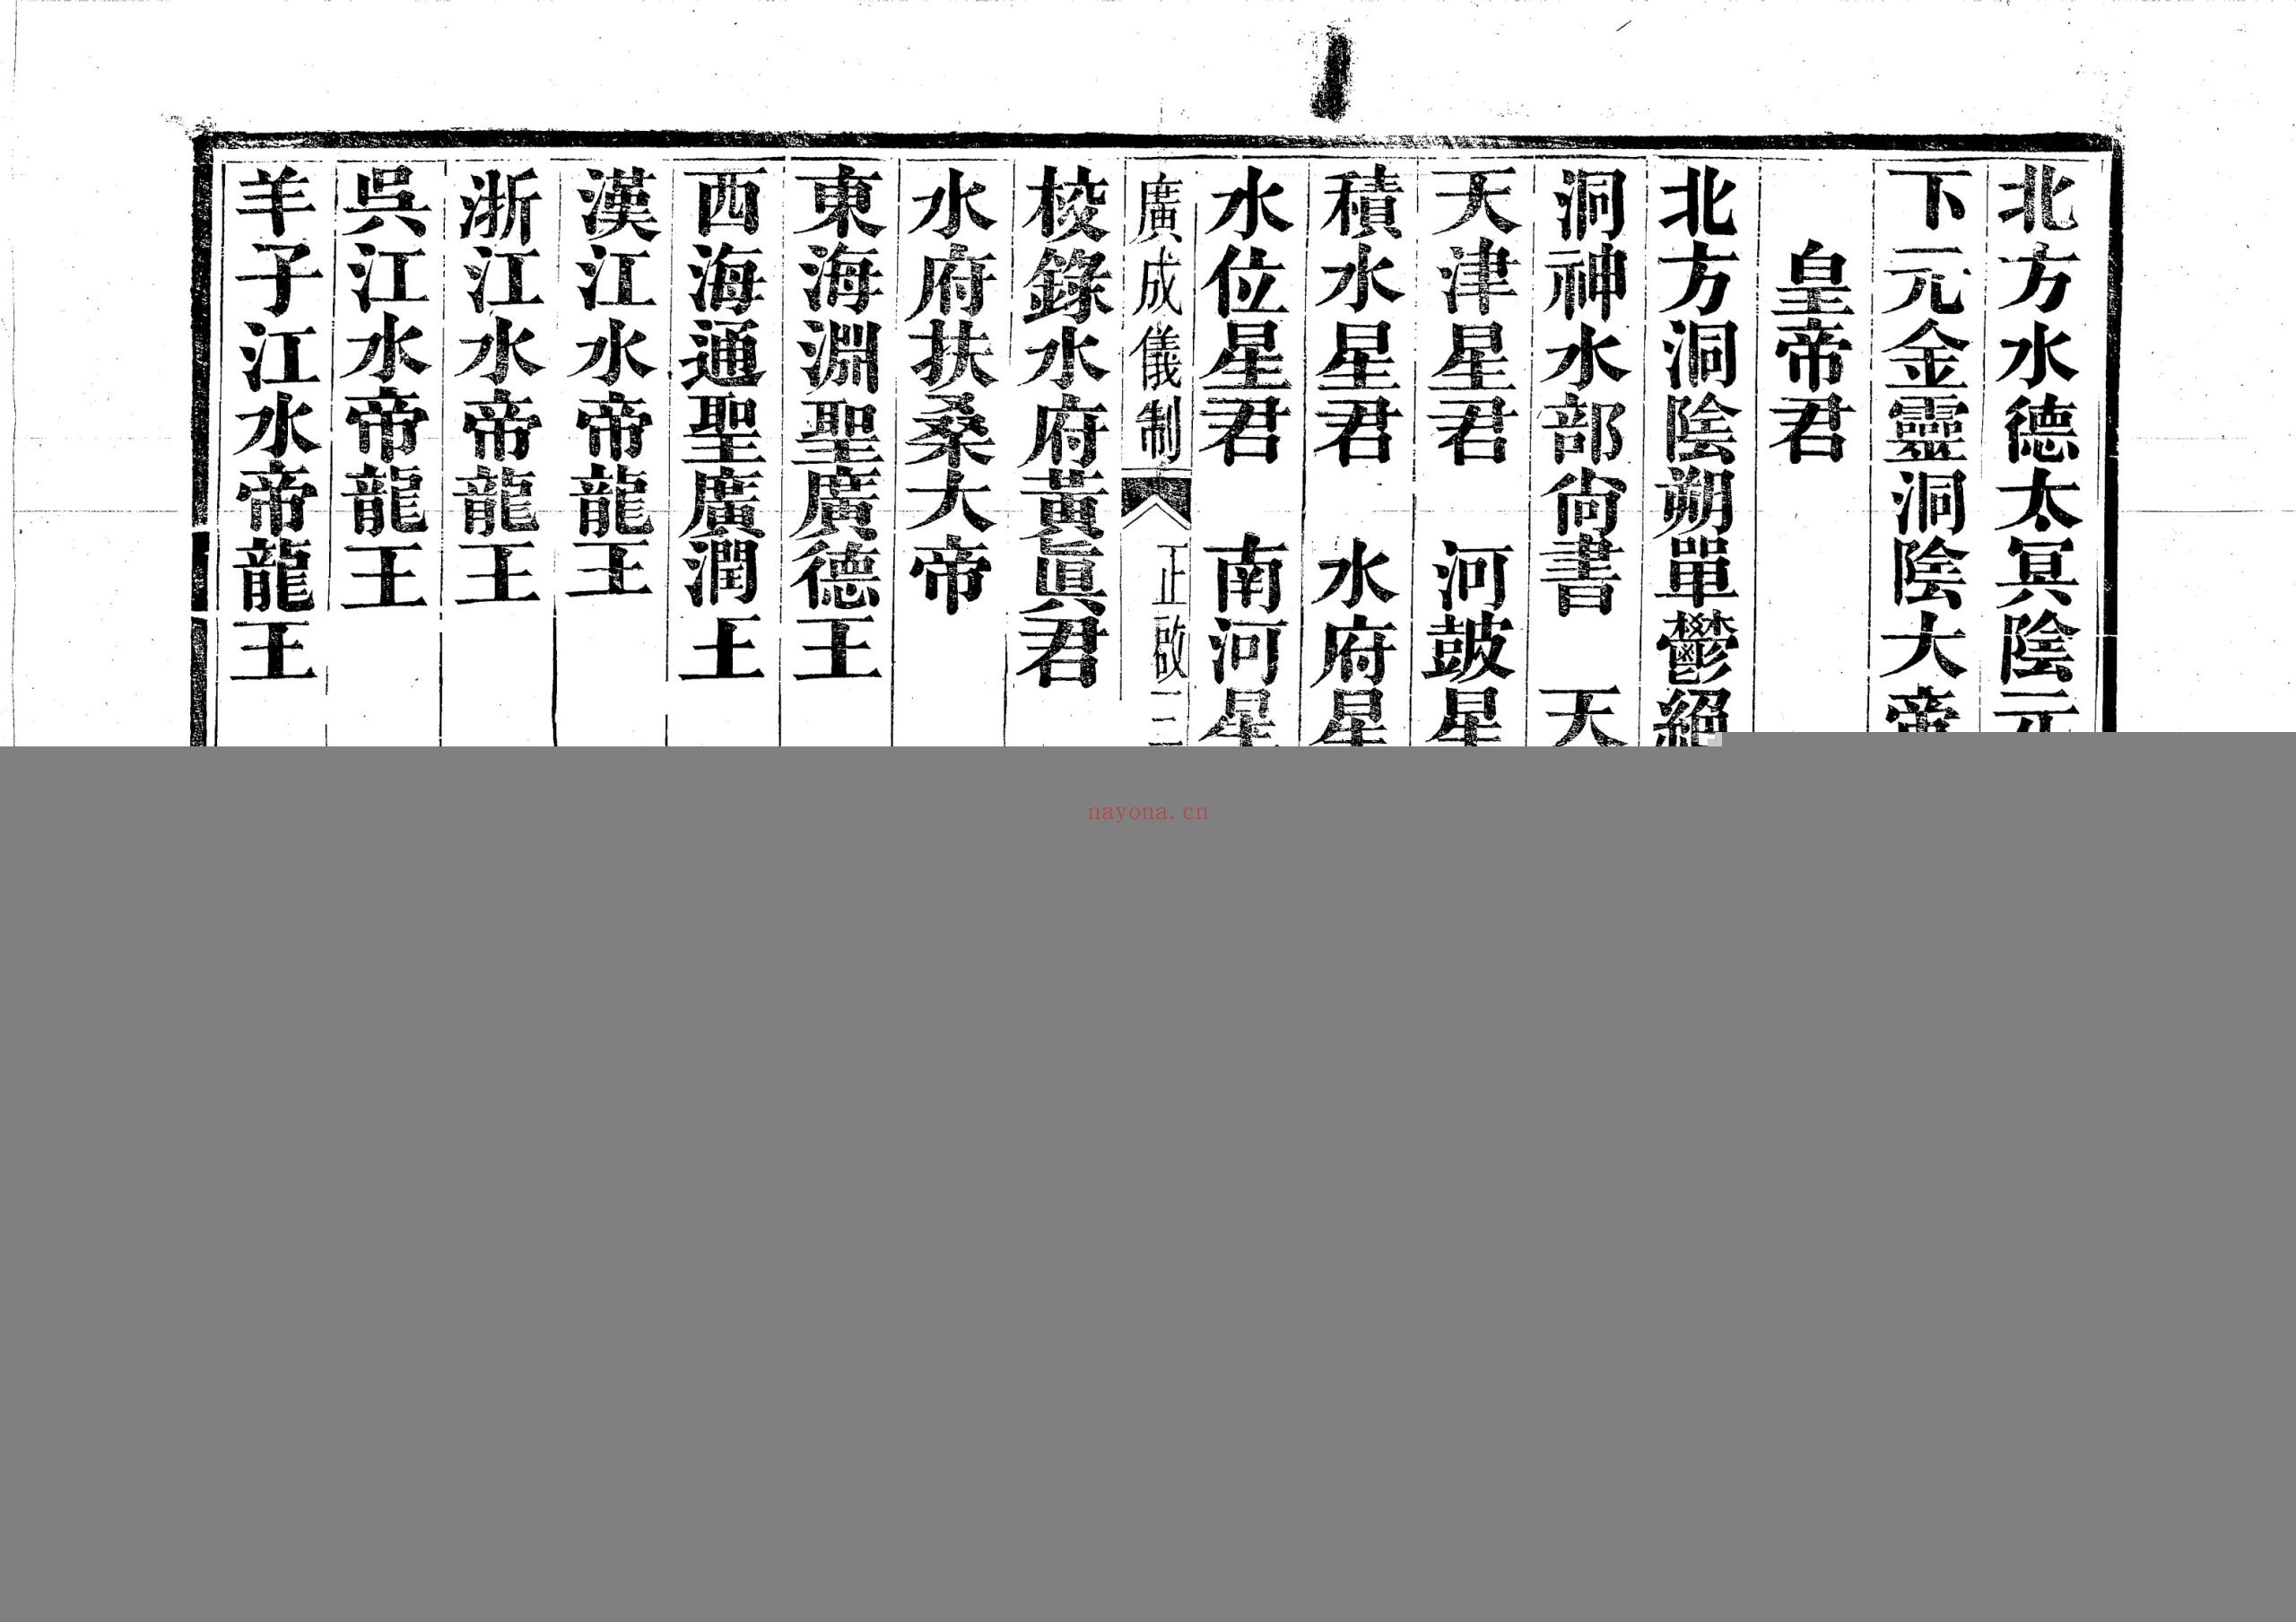 北方水德太冥陰元
下元金靈洞陰大帝
皇帝君
北方洞陰朔單鬱絕
洞神水部尙書　天
天津星君　河鼓星
積水星君　水府星
水位星君　南河星
廣成儀制　正啟三
校錄水府黃眞君
水府扶桑大帝
東海淵聖廣德王
西海通聖廣潤王
漢江水帝龍王
浙江水帝龍王
吳江水帝龍王
羊子江水帝龍王
nayona.cn